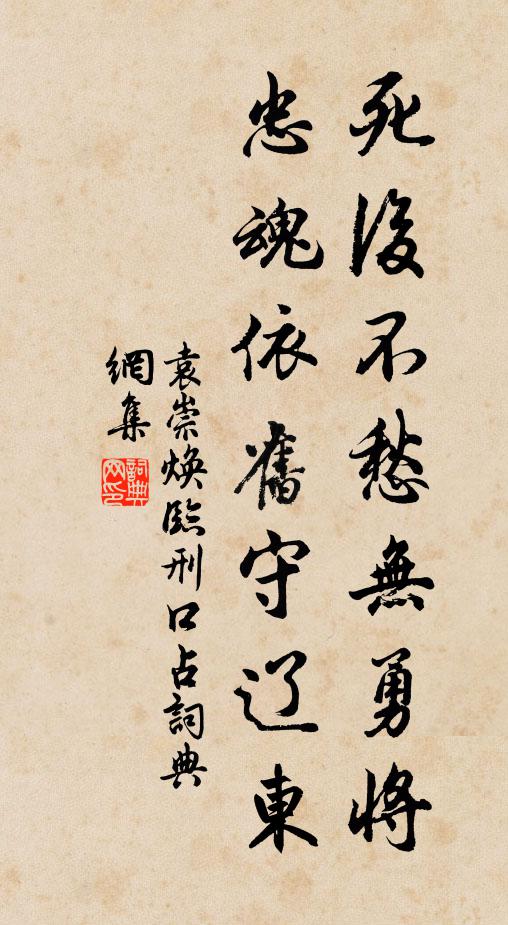 死後不愁無勇將
忠魂依舊守辽東
袁崇煥臨刑口占詞典
網集
詞典
网印